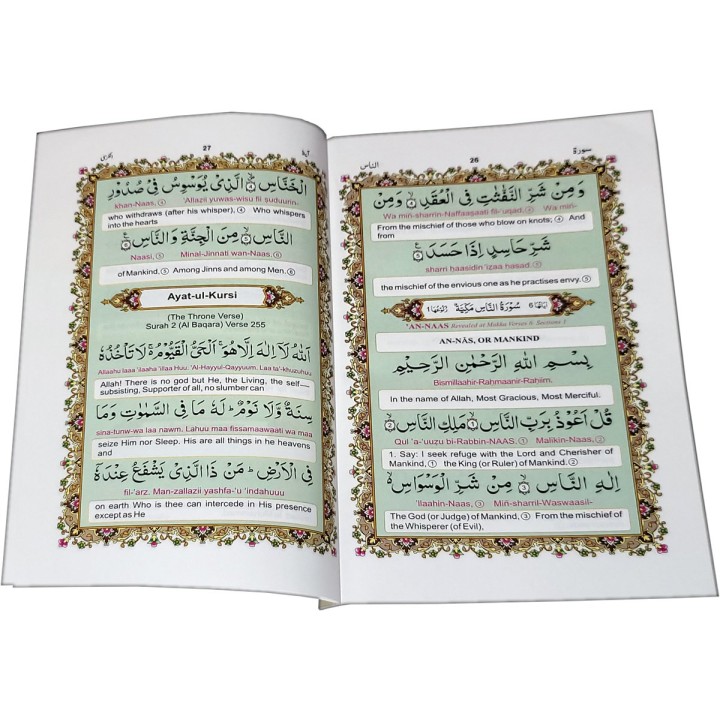 سورة 26 الناس
وَمِنْ شَرِّ النَّفّٰثٰتِ فِى الْعُقَدِ ۙ﴿۴﴾ وَمِنْ
Wa miñ-sharrin-Naffaaṣaati fil-‘uqad. ④ Wa miñ-
From the mischief of those who blow on knots; ④ And
from
شَرِّ حَاسِدٍ اِذَا حَسَدَ ﴿۵﴾
sharri ḥaasidin ’izaa ḥasad. ⑤
the mischief of the envious one as he practises envy. ⑤
اٰياتها 6 سُوْرَةُ النَّاسِ مَكِّيَّةٌ رکوعها 1
’AN-NAAS Revealed at Makka Verses 6 Sections 1
AN-NĀS, OR MANKIND
بِسْمِ اللّٰهِ الرَّحْمٰنِ الرَّحِيْمِ
Bismillaahir-Raḥmaanir-Raḥiim.
In the name of Allah, Most Gracious, Most Merciful.
قُلْ اَعُوْذُ بِرَبِّ النَّاسِ ۙ﴿۱﴾ مَلِكِ النَّاسِ ۙ﴿۲﴾
Qul ’a-‘uuzu bi-Rabbin-NAAS. ① Malikin-Naas, ②
1. Say: I seek refuge with the Lord and Cherisher of
Mankind, ① the King (or Ruler) of Mankind. ②
اِلٰهِ النَّاسِ ۙ﴿۳﴾ مِنْ شَرِّ الْوَسْوَاسِ
’Ilaahin-Naas, ③ Miñ-sharril-Waswaasil-
The God (or Judge) of Mankind, ③ From the mischief of
the Whisperer (of Evil),
آیة 27 الکرسی
الْخَنَّاسِ ۙ﴿۴﴾ الَّذِىْ يُوَسْوِسُ فِىْ صُدُوْرِ
khan-Naas, ④ ’Allazii yuwas-wisu fii ṣuduurin-
who withdraws (after his whisper), ④ Who whispers
into the hearts
النَّاسِ ۙ﴿۵﴾ مِنَ الْجِنَّةِ وَالنَّاسِ ﴿۶﴾
Naasi, ⑤ Minal-Jinnati wan-Naas. ⑥
of Mankind, ⑤ Among Jinns and among Men. ⑥
Ayat-ul-Kursi
(The Throne Verse)
Surah 2 (Al Baqara) Verse 255
اَللّٰهُ لَآ اِلٰهَ اِلَّا هُوَ ۚ اَلْحَىُّ الْقَيُّوْمُ ۚ لَا تَاْخُذُهٗ
Allaahu laaa ’ilaaha ’illaa Huu. ’Al-Ḥayyul-Qayyuum, Laa ta’-khuzuhuu
Allah! There is no god but He, the Living, the self—
subsisting, Supporter of all, no slumber can
سِنَةٌ وَّلَا نَوْمٌ ؕ لَهٗ مَا فِى السَّمٰوٰتِ وَمَا
sina-tunw-wa laa nawm. Lahuu maa fissamaawaati wa maa
seize Him nor Sleep. His are all things in he heavens
and
فِى الْاَرْضِ ؕ مَنْ ذَا الَّذِىْ يَشْفَعُ عِنْدَهٗٓ
fil-’arẓ. Man-zallazii yashfa-‘u ‘indahuuu
on earth Who is thee can intercede in His presence
except as He